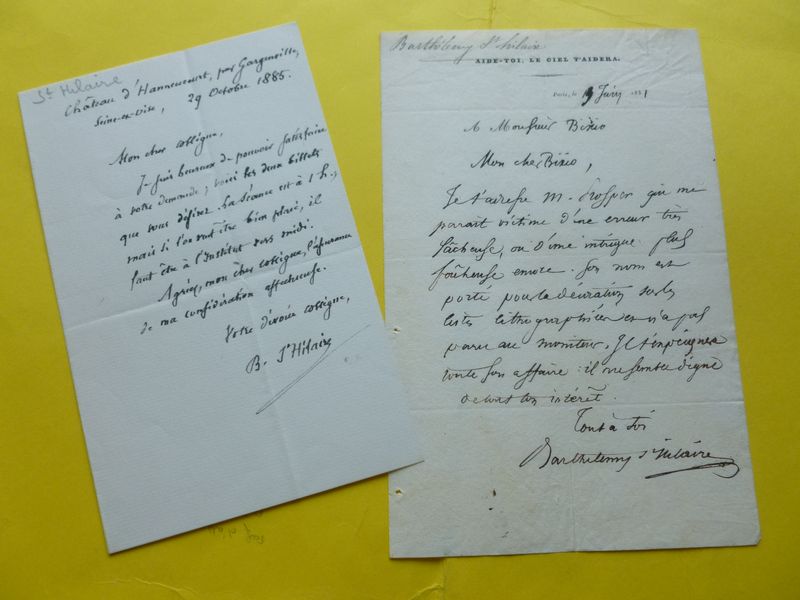 St Hilaire
Château d'Hannencourt, par Gargenville,
Seine-et-Oise, 29 Octobre 1885.
Mon cher collègue,
Je suis heureux de pouvoir satisfaire
à votre demande ; voici les deux billets
que vous désirez. La séance est à 1 h.,
mais si l'on veut être bien placé, il
faut être à l'Institut vers midi.
Agréez, mon cher collègue, l'assurance
de ma considération affectueuse.
Votre dévoué collègue,
B. St Hilaire
Barthélemy St hilaire
AIDE-TOI, LE CIEL T'AIDERA.
Paris, le 19 Juin 1831
A Monsieur Bixio
Mon cher Bixio,
Je t'adresse M. Prosper qui me
parait victime d'une erreur très
fâcheuse, ou d'une intrigue plus
fâcheuse encore. Son nom est
porté pour la décoration sur les
listes lithographiées et n'a pas
paru au moniteur. Il t'expliquera
toute son affaire : il me semble digne
de tout ton intérêt.
Tout à toi
Barthélemy St hilaire